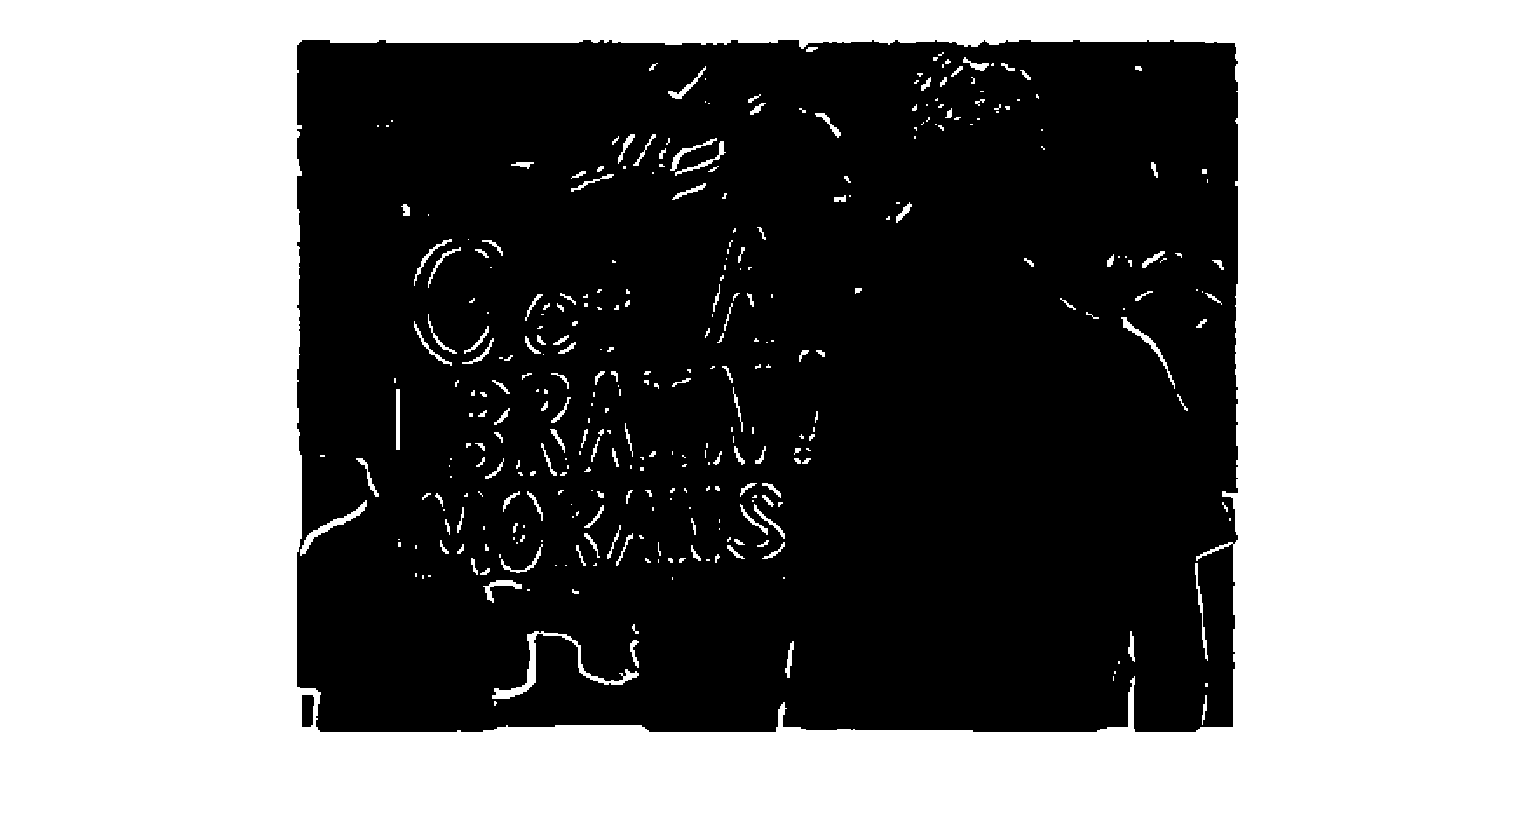 Get A
BRAIN!
MORANS